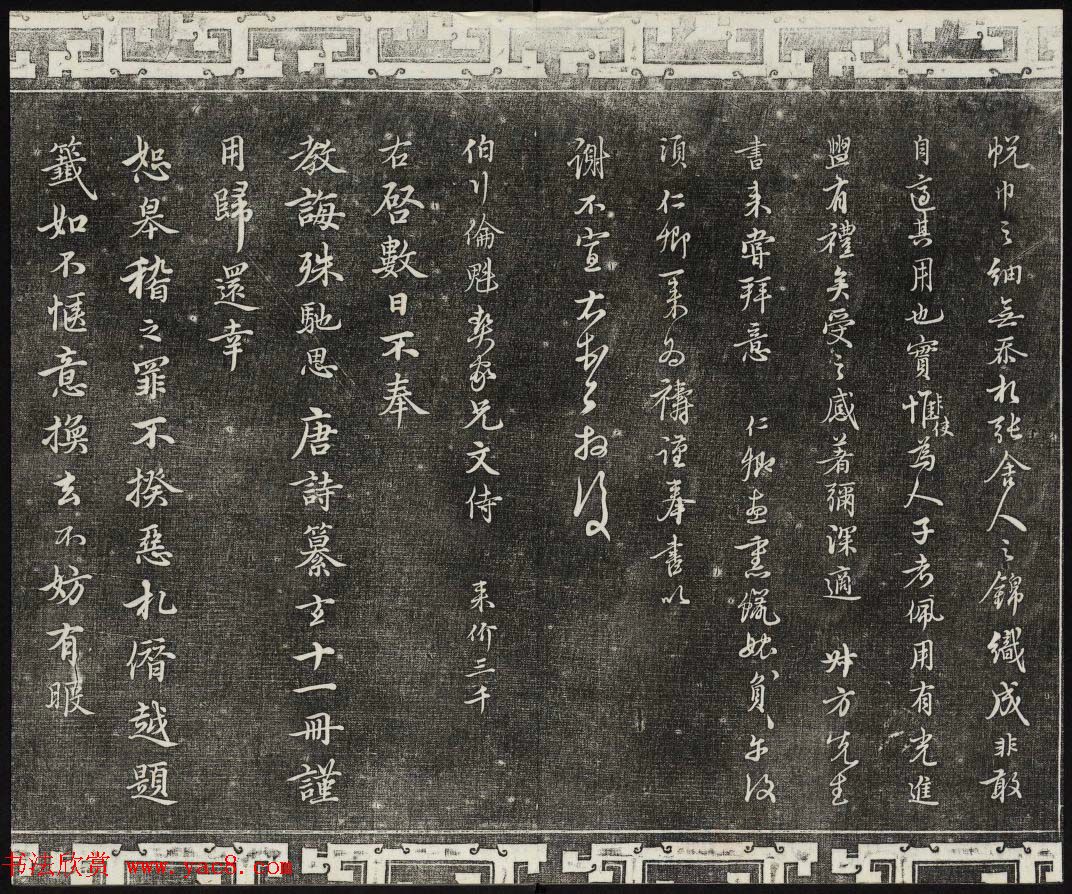 帨巾之細無忝於張舍人之錦織成非敢
自適其用也實惟非使為人子者佩用有光進
盥有禮矣受之感著彌深適 叔方先生
書来嘗拜意 仁卿
須仁卿来為禱謹奉書以
謝不宣
伯行倫魁契家兄文侍 来价三千
右啓數日不奉
教誨殊馳思 唐詩纂玄十一冊謹
用歸還幸
恕皋稽之罪不揆惡札僭越題
籤如不愜意換去不妨有暇
书法欣赏 www.yac8.com